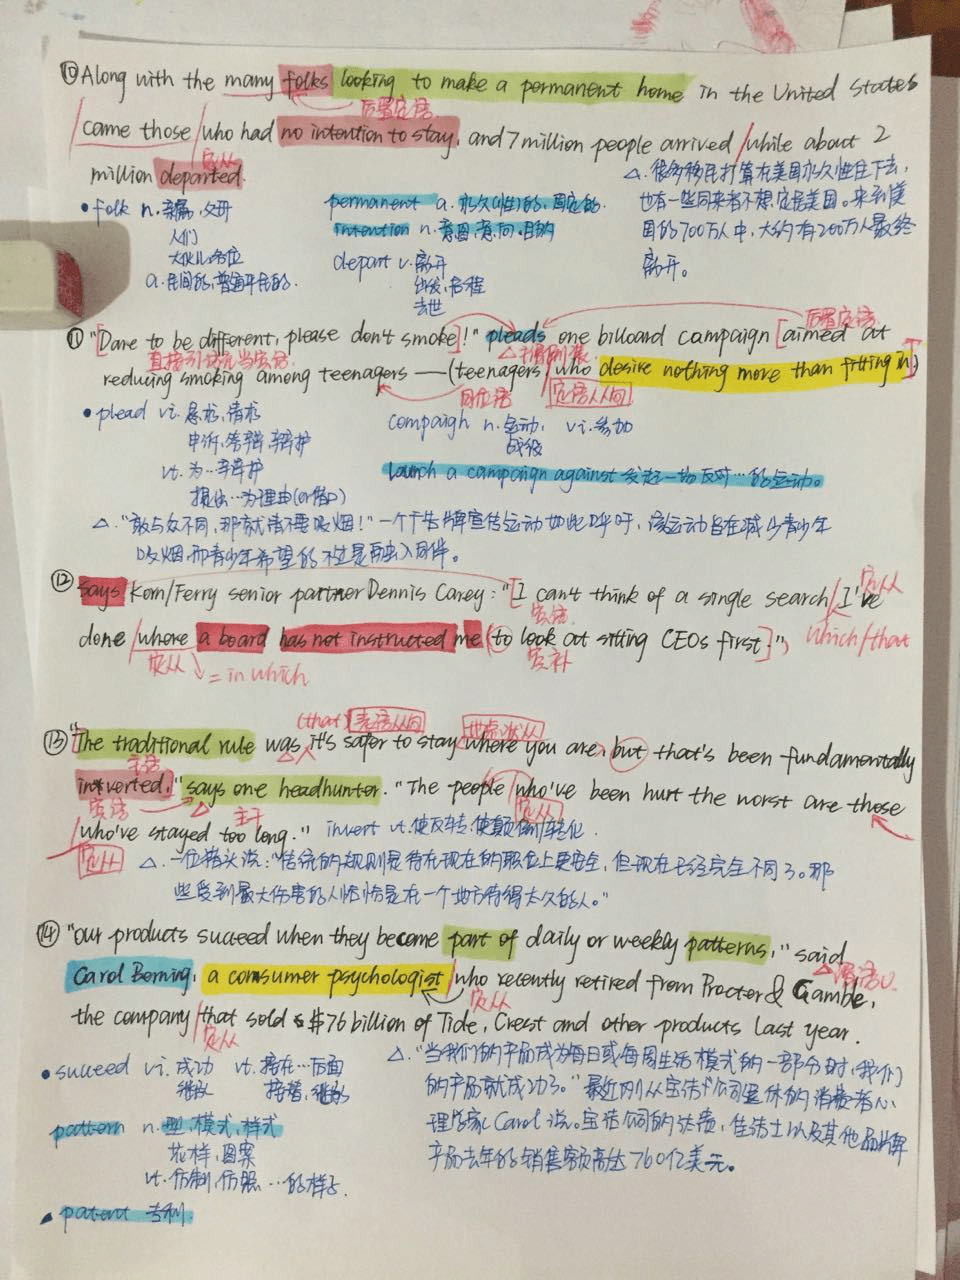 ⑩ Along with the many folks looking to make a permanent home in the United States
后置定语
came those who had no intention to stay, and 7 million people arrived while about 2
定从
million departed.
△. 很多移民打算在美国永久性住下去,
也有一些同来者不想定居美国。来到美
国的700万人中,大约有200万人最终
离开。
• folk n. 亲属,父母
人们
大伙儿,各位
a. 民间的,普通平民的.
permanent a. 永久(性)的,固定的
intention n. 意图,意向,目的
depart v. 离开
出发,启程
去世
⑪ "[Dare to be different, please don't smoke]!" pleads one billoard campaign [aimed at
后置定语
直接引语充当宾语
reducing smoking among teenagers —— (teenagers who desire nothing more than fitting in)]
同位语
定语从句
• plead vi. 恳求,请求
申诉,答辩,辩护
vt. 为…辩护
提出…为理由(or借口)
compaigh n. 运动, vi. 参加
战役
launch a campaign against 发起一场反对…的运动。
△. "敢与众不同,那就请不要吸烟!"一个广告牌宣传运动如此呼吁,该运动旨在减少青少年
吸烟,而青少年希望的不过是融入同伴。
⑫ Says Korn/Ferry senior partner Dennis Carey: "[I can't think of a single search / I've
定从
宾语
which/that
done / where a board has not instructed me (to look at sitting CEOs first)]",
定从
= in which
宾补
(that) 表语从句
地点状从
⑬ "The traditional rule was it's safer to stay where you are, but that's been fundamentally
主语
inverted," says one headhunter. "The people who've been hurt the worst are those
宾语
主干
定从
who've stayed too long." invert vt. 使反转,使颠倒,转化.
定从
△. 一位猎头说:"传统的规则是待在现在的职位上更安全,但现在已经完全不同了。那
些受到最大伤害的人恰恰是在一个地方待得太久的人。"
⑭ "our products succeed when they become part of daily or weekly patterns," said
Carol Berning, a consumer psychologist who recently retired from Procter & Gamble,
定从
the company that sold $76 billion of Tide, Crest and other products last year.
定从
• succeed vi. 成功 vt. 接在…后面
继承 接替,继承
pattern n. 型,模式,样式
花样,图案
vt. 仿制,仿照…的样子.
patent 专利
△. "当我们的产品成为每日或每周生活模式的一部分时,我们
的产品就成功了。"最近刚从宝洁公司退休的消费者心
理学家Carol说。宝洁公司的汰渍,佳洁士以及其他品牌
产品去年的销售额高达760亿美元。